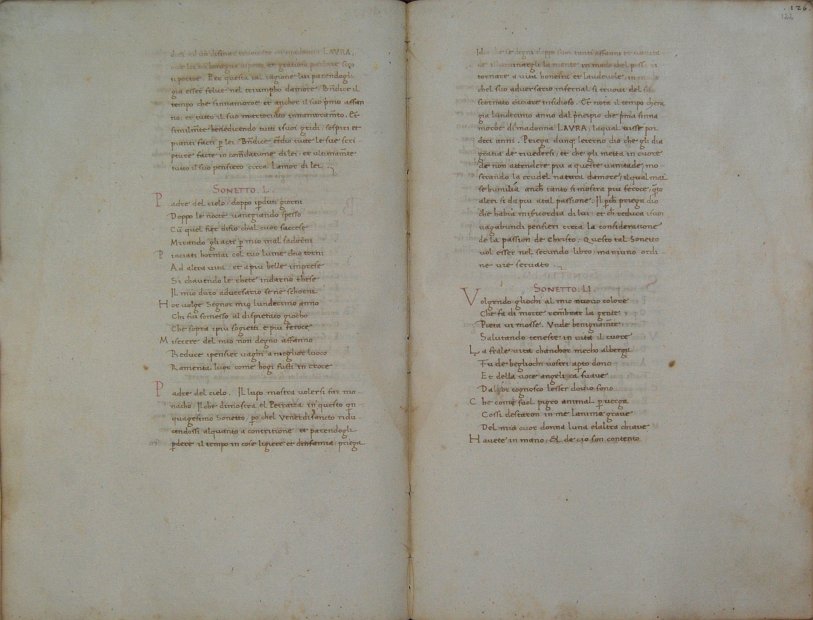 LAVRA
tempo che sinnamoroe et anchor il suo pmo affan
no, et tutto il suo martorizato innamoramto. Et
similmte benedicendo tutti i suoi gridi, sospiri et
pianti facti p lei. Bndice
pture facte in di lei, et ultimamte
tutto il suo pensiero circa lamor di lei
SONETTO. L.
Padre del cielo doppo iperduti giorni
Doppo le nocte vanegiando spesso
Cu quel fier disio chal cuor saccese
Mirando gliacti p mio mal
Piaciati hormai col tuo lume chio torni
Ad altra vita, et a piu belle imprese
Si chavendo le rete indarno tese
Il mio duro adversario se ne schorni
Hor volge Signor mio lundecimo anno
Chi fui somesso al dispietato giogho
Che sopra ipiu sogietti e piu feroce
Miserere del mio non degno affanno
Reduce ipensier vaghi a meglior luoco
Ramenta lor come hogi fusti in croce
Padre del cielo. Il lugo mostra volersi far mo
nacho. Ilche dimostra el Petrarca in questo qn
quagesimo Sonetto, po chel Venerdi sancto ridu
cendossi alquanto a contritione et parendogli
pdere il tempo in cose ligiere et priega
126
126
Idio che se degni doppo
illuminargli la mente in modo chel
tornare a vita honesta et laudevole in
chel suo adversario infernal si truovi del
scornato et have insidioso. Et nota il tempo
gia landecino anno dal principio che prima sinna
moroe di madonna LAVRA, laqual visse poi
deci anni. Priega dunq leterno dio che gli dia
gratia de rivedersi, et che gli metta in cuore
de non attendere piu a queste vanitade, mo
strando la crudel natura damore, ilqual mai
se humilia, anch tanto si mostra piu feroce, qto
altri si da piu a tal passione. Il pch priega dio
che habia misericordia di lui, et ch reduca i suoi
vagabundi pensieri circa la consideratione
de la passion de Christo, Questo tal Sonetto
vol esser nel secundo libro, ma niuno ordi
ne vie servato
SONETTO. LI.
Volgendo gliochi al mio nuovo colore
Che fa di morte rembrar la gente
Pieta vi mosse. Unde benignamte
Salutando teneste in vita il cuore
La fraile vita chanchor mecho alberga
Fu de begliochi vostri apto dono
Et della voce angelica suave
Da lhor cognosco lesser dovio sono
Che come suol pigro animal p verga
Cossi destaron in me lanima grave
Del mio cuor donna luna elaltra chiave
Havete in mano, Et de cio son contento